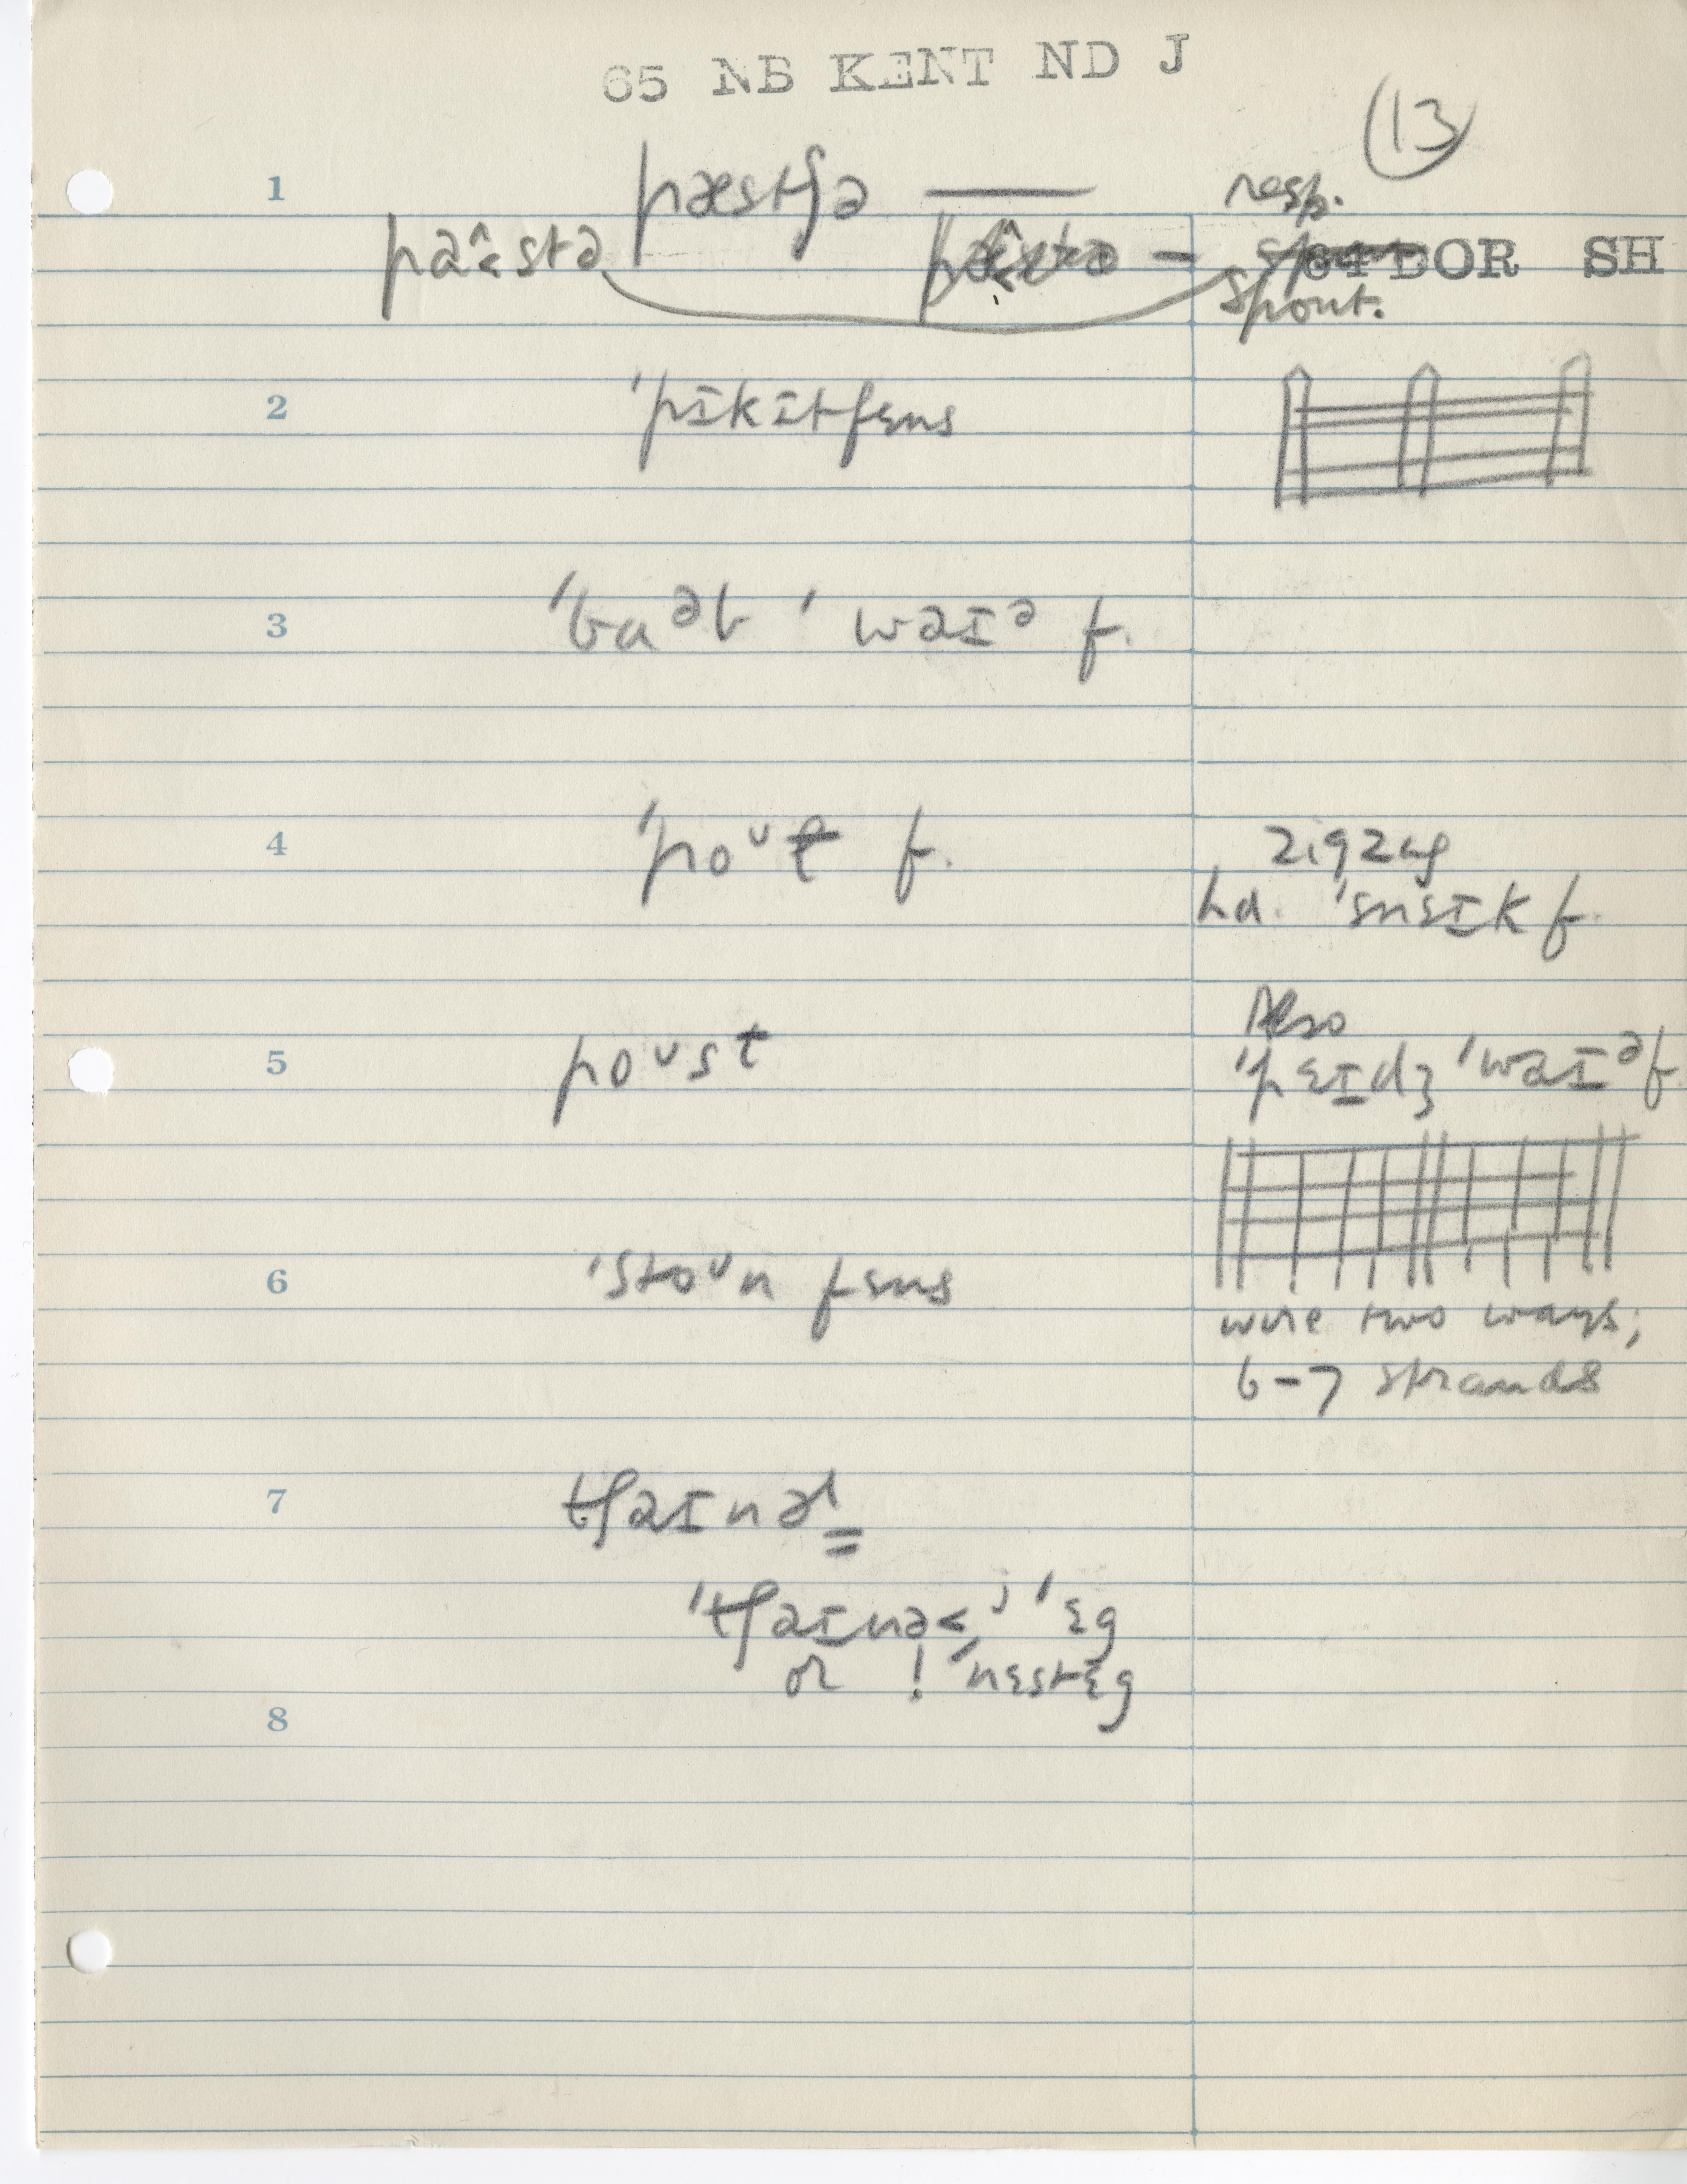 65 NB KENT ND J
13
1
pæstʃə —
resp.
paˆ˂stə
64 DOR SH
spout.
2
ˈpɪkɪtfɛns
3
ˈbaᵊb ˈwaɪᵊ f.
4
ˈpoᵘt f.
zigzag
ˈsnɛɪk f.
5
poᵘst
Also
ˈpɛɪdʒ ˈwaɪᵊ f.
6
ˈstoᵘn fɛns
wire two ways;
6-7 strands
7
tʃaɪnə
ˈtʃaɪnə˂ʲ ˈɛg
or ! ˈnɛstɛg
8